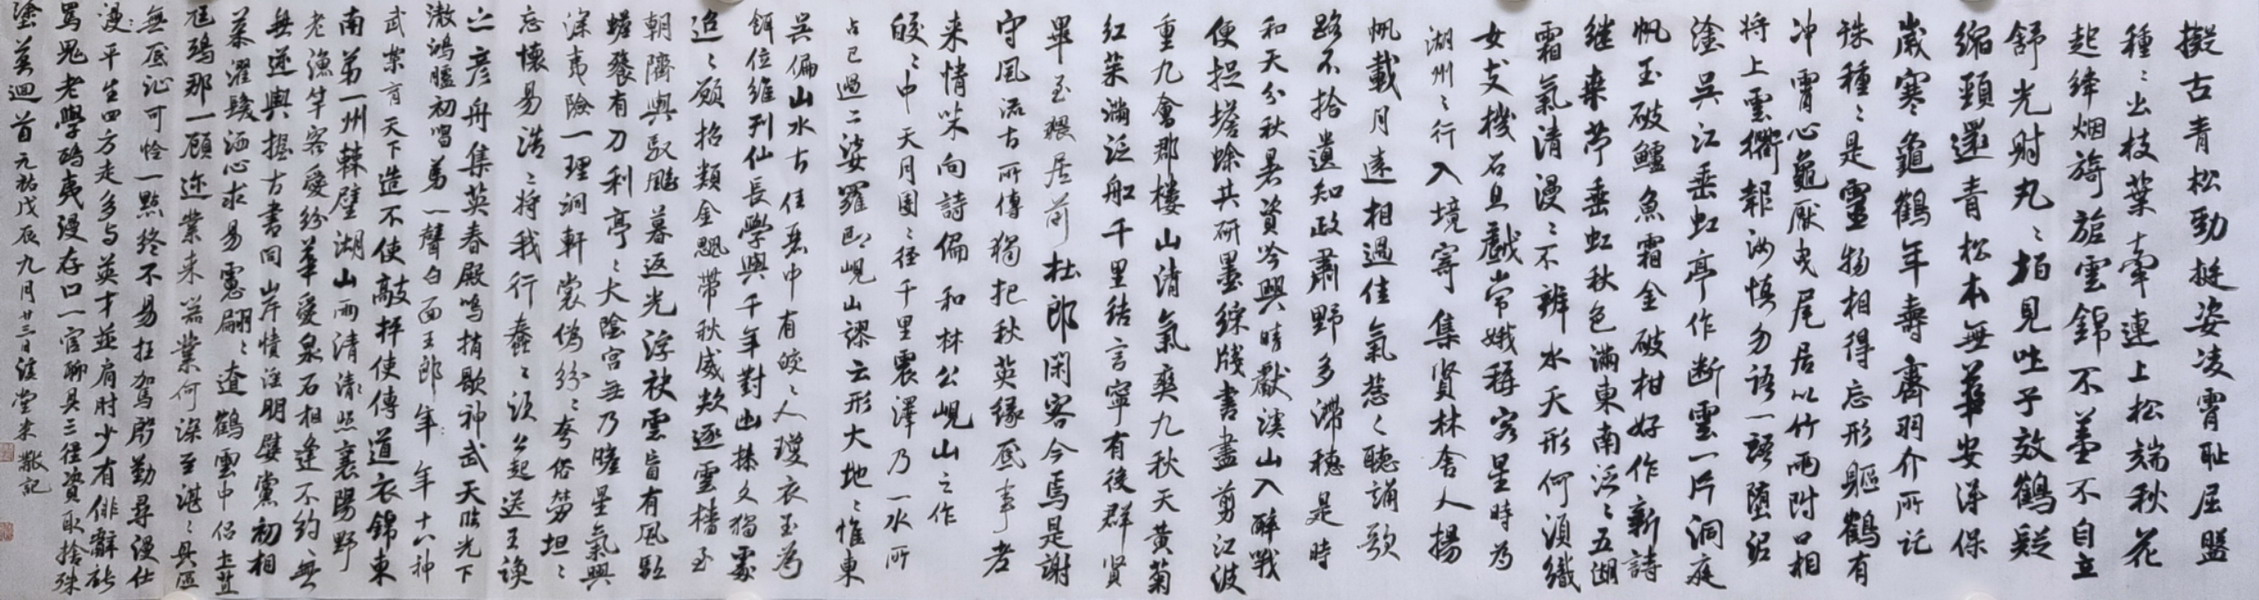 擬古青松勁挺姿凌霄恥屈盤
種〻出枝葉牽連上松端秋花
起絳烟旖旎雲錦不羞不自立
舒光射丸〻柏見吐子效鶴疑
縮頸還青松本無華安得保
歲寒龜鶴年壽齊羽介所託
殊種〻是靈物相得忘形軀鶴有
冲霄心龜厭曳尾居以竹兩附口相
将上雲衢報汝慎勿語一語墮泥
塗吳江垂虹亭作断雲一片洞庭
帆玉破鱸魚霜金破柑好作新詩
继桑苧垂虹秋色滿東南泛〻五湖
霜氣清漫〻不辨水天形何須織
女支機石且戲常娥稱客星時为
湖州之行入境寄集賢林舍人揚
帆載月遠相過佳氣葱〻聽誦歌
路不拾遺知政肅野多滯穗是時
和天分秋暑資吟興晴獻溪山入醉戰
便捉蟾蜍共研墨綵牋書盡剪江波
重九會郡樓山清氣爽九秋天黄菊
红茱滿泛船千里結言寧有後群賢
畢至猥居前杜郎閑客今焉是謝
守風流古所傳獨把秋英缘底事老
来情味向詩偏和林公峴山之作
皎〻中天月團〻径千里震澤乃一水所
占已過二娑羅即峴山謬云形大地〻惟東
吴偏山水古佳丽中有皎〻人瓊衣玉为
餌位維列仙長學與千年對幽操久獨處
迢〻願招類金飇帶秋威欻逐雲檣至
朝隮與馭飇暮返光浮袂雲盲有風馭
蟾餮有刀利亭〻太陰宮無乃瞻星氣興
深夷險一理洞軒裳偽紛〻夸俗勞坦〻
忘懷易浩〻将我行蠢〻须公起送王渙
之彦舟集英春殿鳴捎歇神武天臨光下
澈鴻臚初唱第一聲白面王郎年〻年十八神
武樂育天下造不使敲枰使傳道衣錦東
南第一州棘璧湖山兩清清照襄陽野
老漁竿客爱紛華爱泉石相逢不約無
無逆與握古書同岸幘淫朋嬖黨初相
慕濯髮洒心求易慮翩〻遼鶴雲中侣土苴
尪鴟那一顧迩業来器業何深至湛〻具區
無底沚可怜一點終不易枉駕殷勤尋漫仕
漫平生四方走多与英才並肩肘少有俳辭能
罵鬼老學鴟夷漫存口一官聊具三径資取捨殊
塗莫迴首元祐戊辰九月廿三日溪堂米黻記